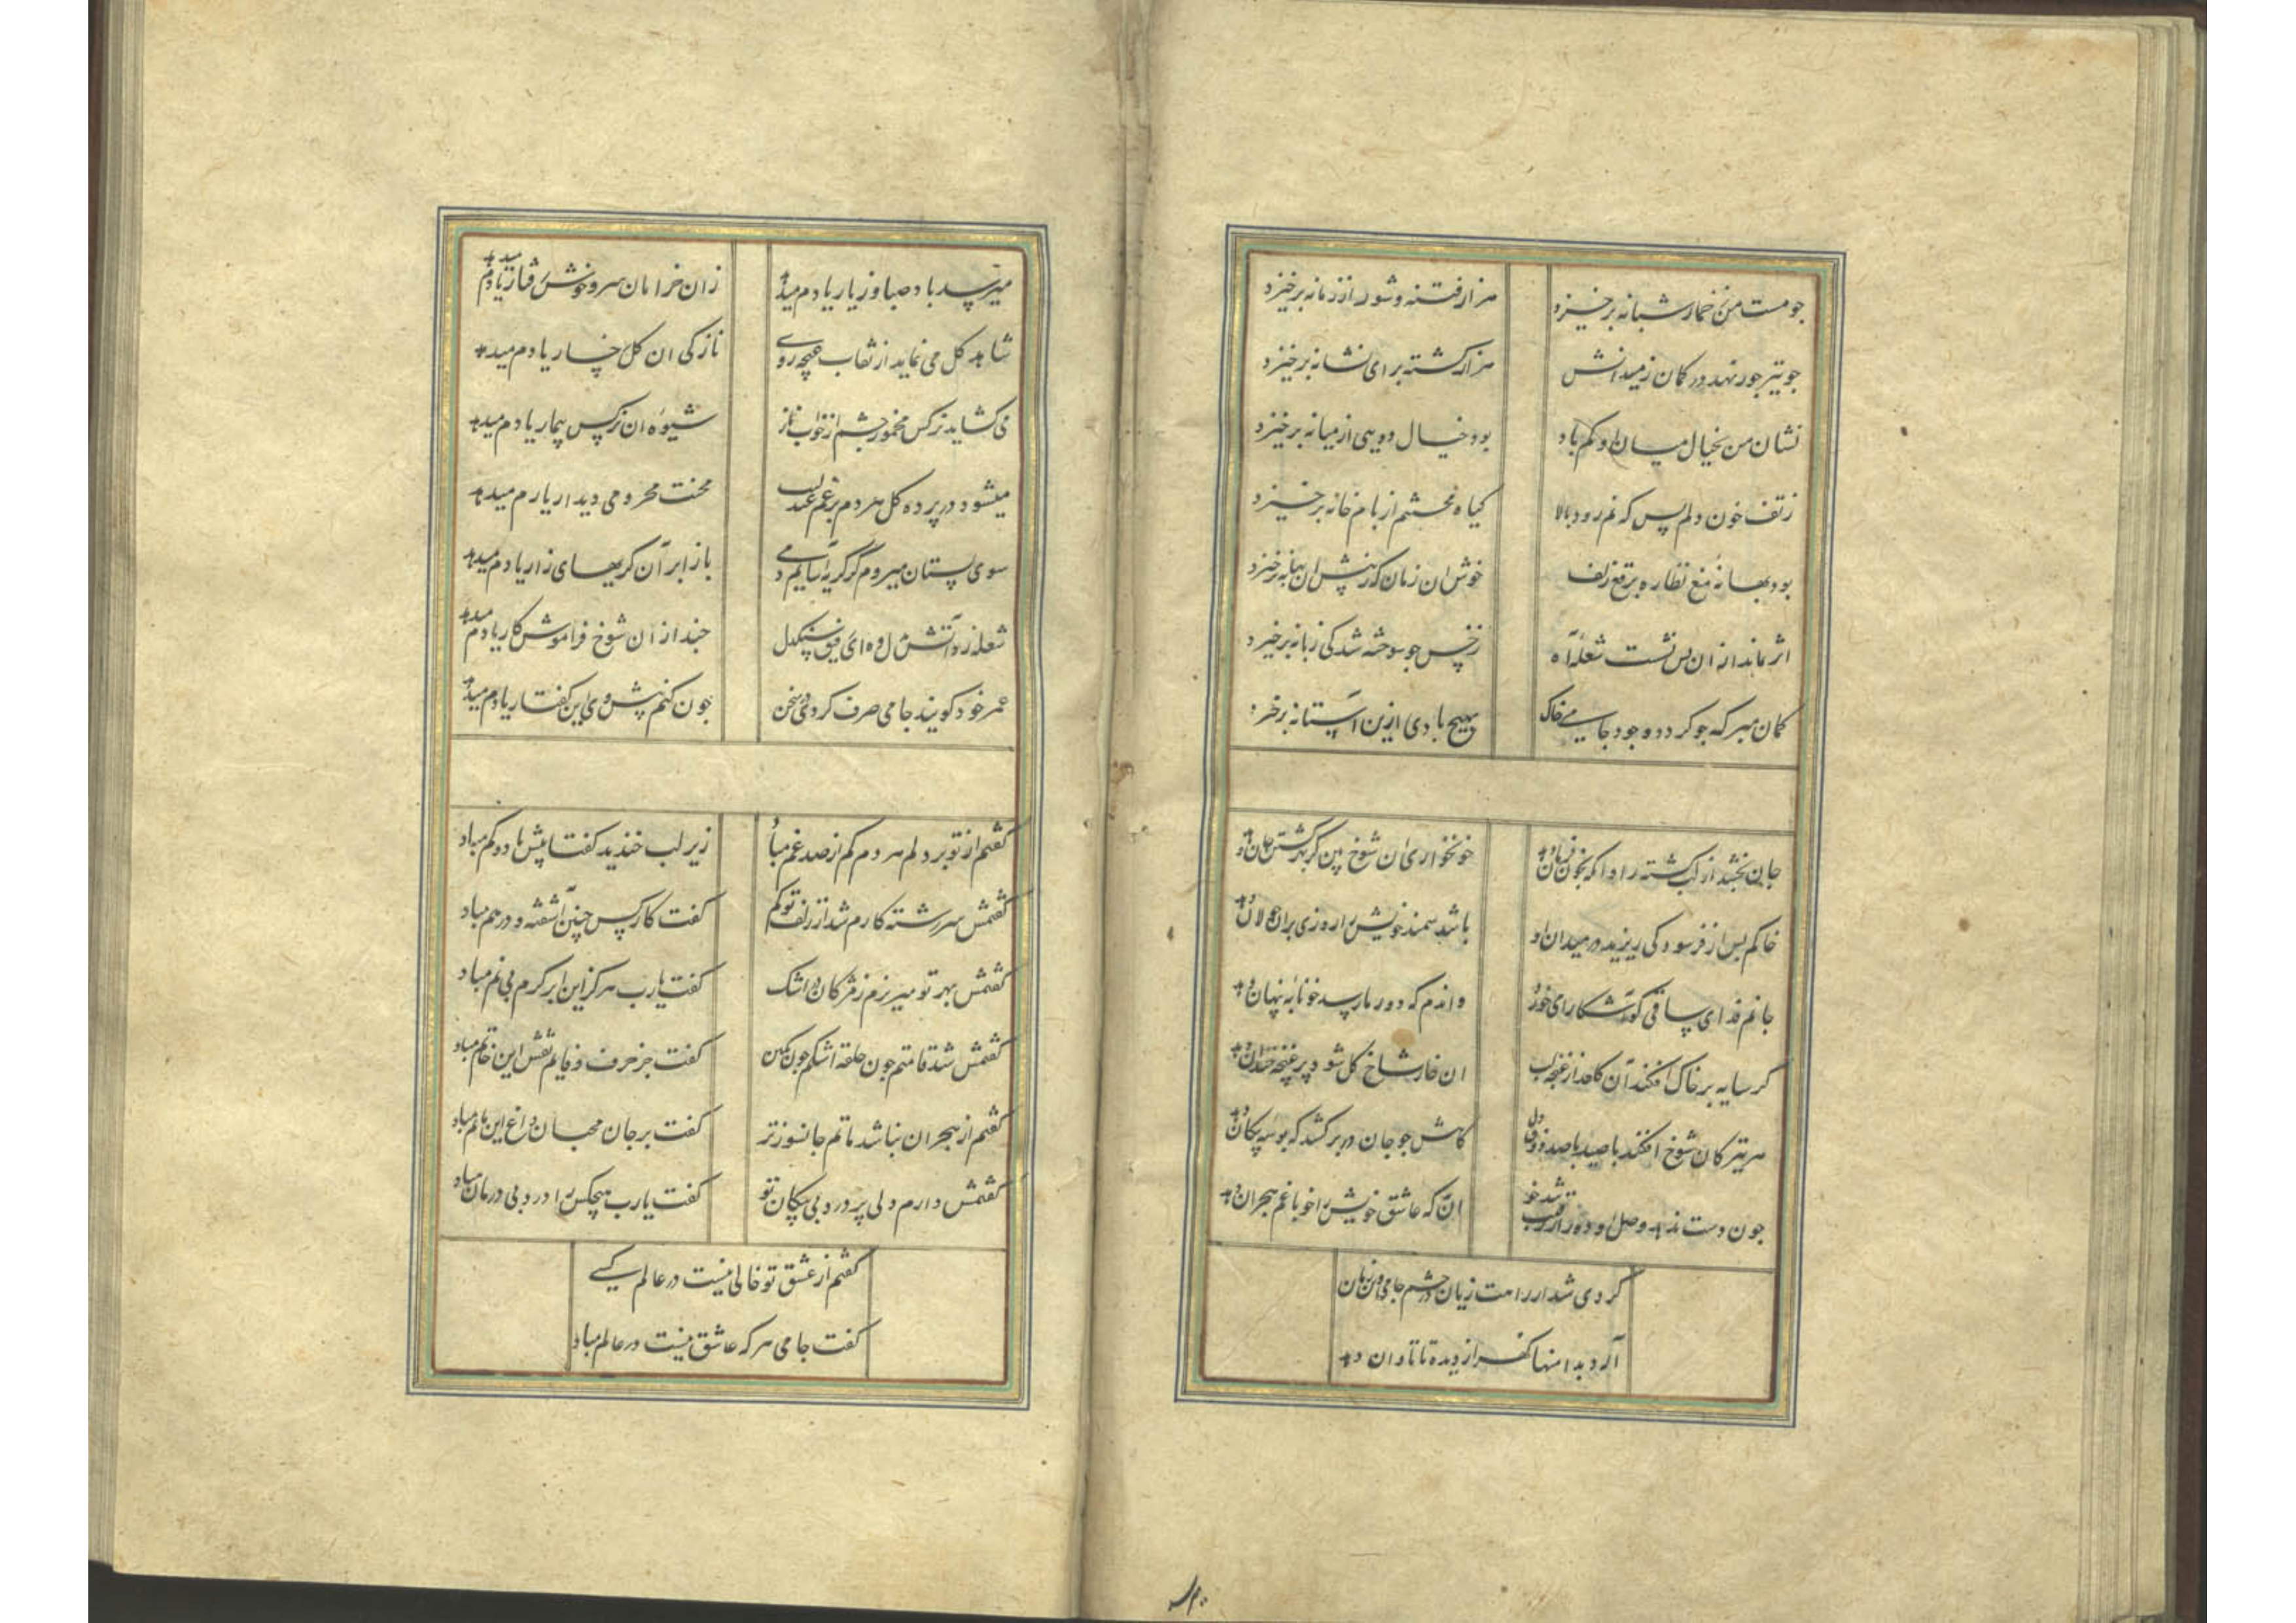 جو مست من ز خمار شبانه برخیزد هزار فتنه و شور از زمانه برخیزد
جو تیر جور نهد در کمان ز میدانش هزار کشته برای نشانه برخیزد
نشان من بخیال میان او کم باد بود خیال دویی از میانه برخیزد
ز تف خون دلم بس که نم رود بالا کیاه محنتم از بام خانه برخیزد
بود بهانه منع نظاره برقع زلف خوش ان زمان که ز پیش ان بهانه برخیزد
اثر نماند از ان بس نشست شعله آه ز خس جو سوخته شد کی زبانه برخیزد
کمان مبر که جو کردد وجود جامی خاک بهیچ بادی ازین استانه برخیزد
جان بخشد از لب کشته را و انکه بخون فرمان دهد خونخواری ان شوخ بین کز بهر کشتن جان دهد
خاکم بس از فرسودکی ریزید در میدان او باشد سمند خویش را روزی بران جولان دهد
جانم فدای ساقی کو آشکارا می خورد و اندم که دور ما رسد خونابه پنهان دهد
کر سایه بر خاک افکند آن کلعذار غنچه لب ان خار شاخ کل شود بر غنچه خندان دهد
هر تیر کان شوخ افکند با صید با صد ذوق دل کاهش جو جان در بر کشد که بوسه پیکان دهد
جون دست ندهد وصل او دور از رقیب ان که عاشق خویش را خو با غم هجران دهد
کردی شد از راهت زیان در چشم جامی
از دیده تا تاوان دهد
میرسد باد صبا وز یار یادم میدهد زان خرامان سرو خوش رفتار یادم میدهد
شاهد کل می نماید از نقاب غنچه روی نازکی ان کل رخسار یادم میدهد
می کشاید نرکس مخمور چشم از خواب ناز شیوه ان نرکس بیمار یادم میدهد
میشود در پرده کل هر دم برغم عندلیب محنت محرومی دیدار یارم میدهد
سوی بستان میروم کز کریه آسایم دمی باز ابر آن کریهای زار یادم میدهد
شعله زد آتش دل وه ای رفیق سنکدل جند از ان شوخ فراموش کار یادم میدهد
عمر خود کویند جامی صرف کردی در سخن جون کنم پیش وی این کفتار یادم میدهد
کفتم از تو بر دلم هر دم کم از صد غم مباد زیر لب خندید کفتا بیش باد و کم مباد
کفتمش سررشته کارم شد از زلف تو کم کفت کار کس جنین آشفته و درهم مباد
کفتمش بهر تو میریزم ز مژکان در اشک کفت یارب هرکز این ابر کرم بی نم مباد
کفتمش شد قامتم جون حلقه اشکم جون نکین کفت جز حرف وفایم نقش این خاتم مباد
کفتم از هجران نباشد ماتم جانسوزتر کفت بر جان محبان داغ این ماتم مباد
کفتمش دارم دلی پر درد بی پیکان تو کفت یارب هیچکس را درد بی درمان مباد
کفتم از عشق تو خالی نیست در عالم کسی
کفت جامی هر که عاشق نیست در عالم مباد